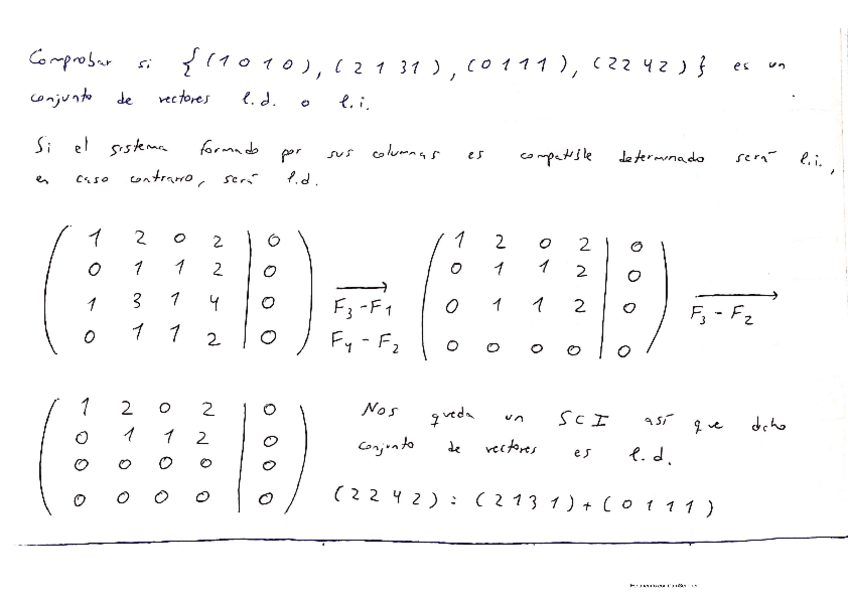 Comprobar si {(1 0 1 0), (2 1 3 1), (0 1 1 1), (2 2 4 2)} es un
conjunto de vectores l.d. o l.i.
Si el sistema formado por sus columnas es compatible determinado será l.i.,
en caso contrario, será l.d.
1 2 0 2 | 0
0 1 1 2 | 0
1 3 1 4 | 0
0 1 1 2 | 0
F3-F1
F4-F2
1 2 0 2 | 0
0 1 1 2 | 0
0 1 1 2 | 0
0 0 0 0 | 0
F3-F2
1 2 0 2 | 0
0 1 1 2 | 0
0 0 0 0 | 0
0 0 0 0 | 0
Nos queda un SCI así que dicho
conjunto de vectores es l.d.
(2 2 4 2) = (2 1 3 1) + (0 1 1 1)